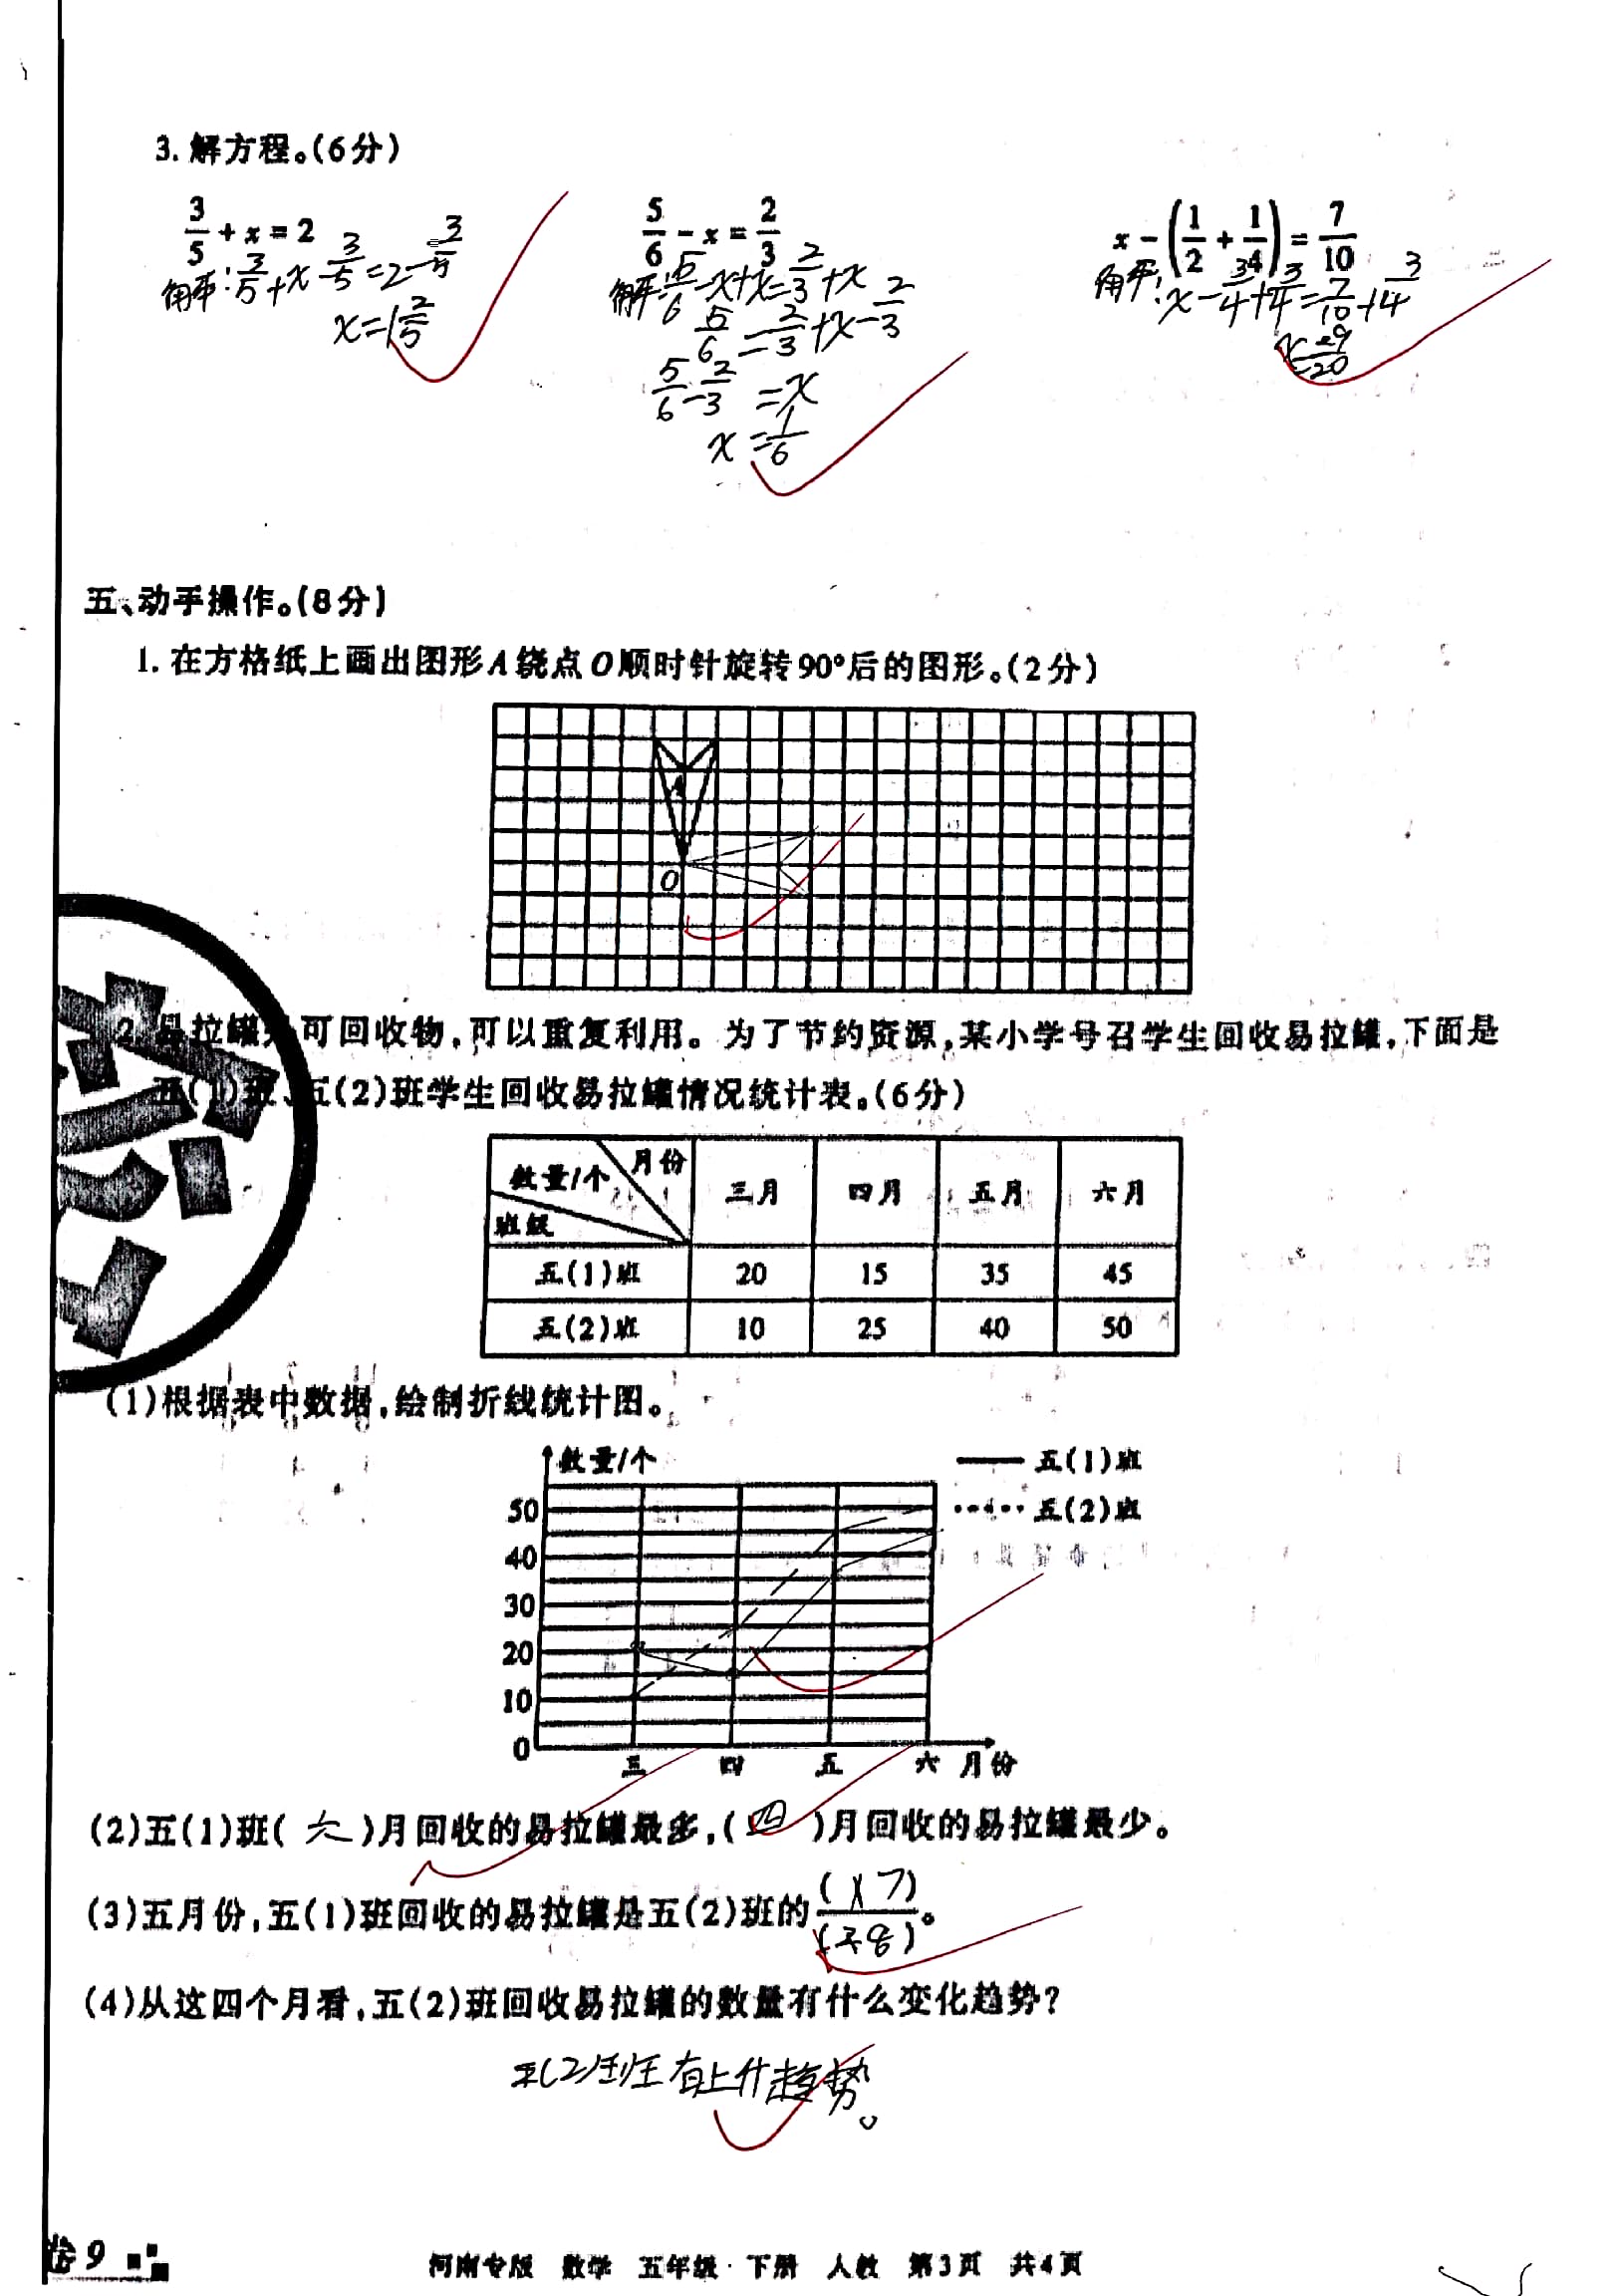 3. 解方程。(6分)
3/5 + x = 2
解: 3/5 + x - 3/5 = 2 - 3/5
x = 1 2/5
5/6 - x = 2/3
解: 5/6 - x + x = 2/3 + x
5/6 = 2/3 + x - 2/3
5/6 - 2/3 = x
x = 1/6
x - (1/2 + 1/4) = 7/10
解: x - 3/4 + 3/4 = 7/10 + 3/4
x = 29/20
五、动手操作。(8分)
1. 在方格纸上画出图形A绕点O顺时针旋转90°后的图形。(2分)
A
O
2. 易拉罐是可回收物,可以重复利用。为了节约资源,某小学号召学生回收易拉罐,下面是
五(1)班、五(2)班学生回收易拉罐情况统计表。(6分)
数量/个 月份 班级 三月 四月 五月 六月
五(1)班 20 15 35 45
五(2)班 10 25 40 50
(1)根据表中数据,绘制折线统计图。
数量/个
五(1)班
五(2)班
50
40
30
20
10
0
三 四 五 六 月份
(2)五(1)班( 六 )月回收的易拉罐最多,( 四 )月回收的易拉罐最少。
(3)五月份,五(1)班回收的易拉罐是五(2)班的( 7 )/( 8 )。
(4)从这四个月看,五(2)班回收易拉罐的数量有什么变化趋势?
五(2)班 有上升趋势。
卷9
河南专版 数学 五年级·下册 人教 第3页 共4页